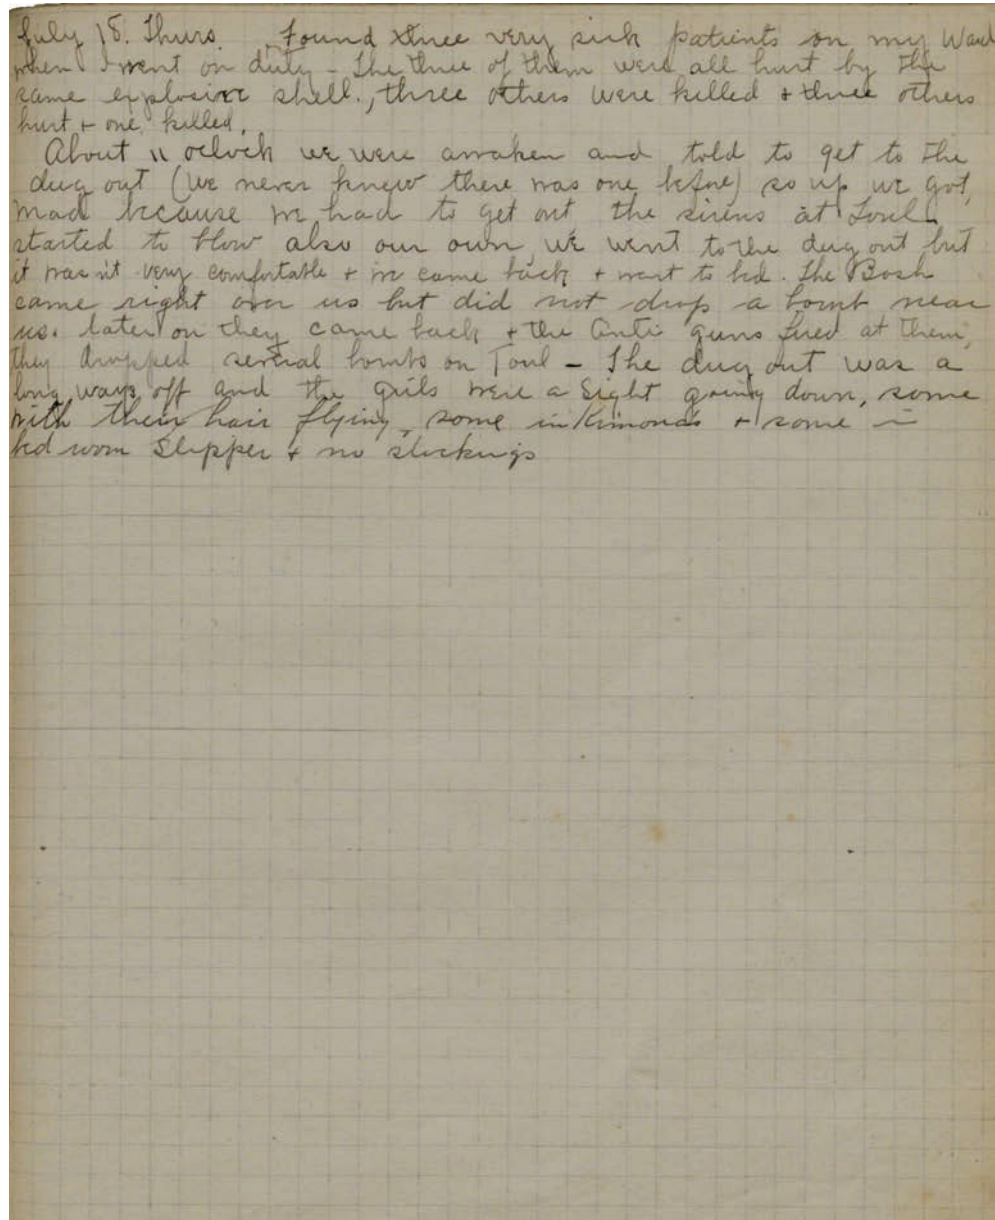 July 18. Thurs. Found three very sick patients on my Ward
when I went on duty - The three of them were all hurt by the
same explosive shell., three others were killed + three others
hurt + one killed.
About 11 oclock we were awaken and told to get to the
dug out (we never knew there was one before) so up we got,
mad because we had to get out the sirens at Toul
started to blow also our own, we went to the dug out but
it was'nt very comfortable + we came back + went to bed. The Bosh
came right over us but did not drop a bomb near
us. later on they came back + the Anti guns fired at them,
they dropped serval bombs on Toul - The dug out was a
long ways off and the girls were a sight going down, some
with their hair flying, some in Kimonas + some in
bed room Slipper + no stockings